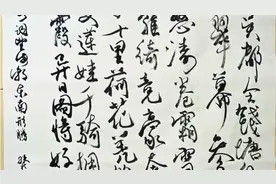 吴都会钱塘
翠幕参
怒涛卷霜雪
罗绮竞豪奢
十里荷花羌
莲娃千骑拥
霞异日图将好
调望海潮东南形胜